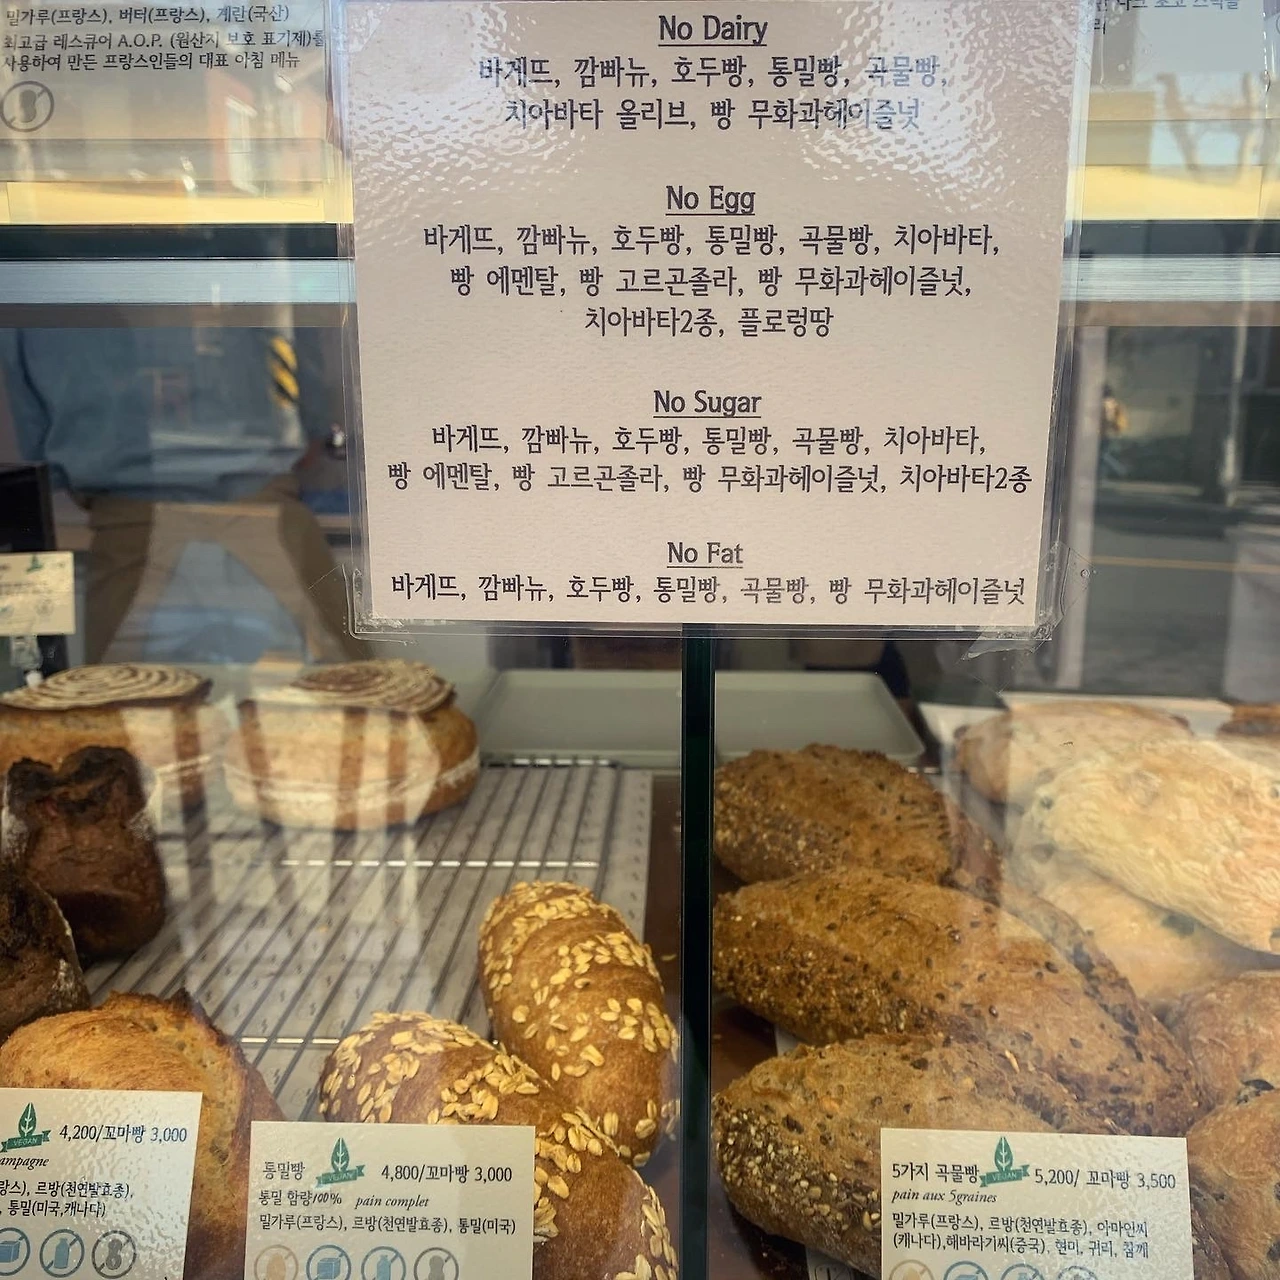 밀가루(프랑스), 버터(프랑스), 계란(국산)
최고급 레스큐어 A.O.P. (원산지 보호 표기제)를
사용하여 만든 프랑스인들의 대표 아침 메뉴
No Dairy
바게뜨, 깜빠뉴, 호두빵, 통밀빵, 곡물빵,
치아바타 올리브, 빵 무화과헤이즐넛
No Egg
바게뜨, 깜빠뉴, 호두빵, 통밀빵, 곡물빵, 치아바타,
빵 에멘탈, 빵 고르곤졸라, 빵 무화과헤이즐넛,
치아바타2종, 플로렁땅
No Sugar
바게뜨, 깜빠뉴, 호두빵, 통밀빵, 곡물빵, 치아바타,
빵 에멘탈, 빵 고르곤졸라, 빵 무화과헤이즐넛, 치아바타2종
No Fat
바게뜨, 깜빠뉴, 호두빵, 통밀빵, 곡물빵, 빵 무화과헤이즐넛
VEGAN 4,200/꼬마빵 3,000
ampagne
랑스), 르방(천연발효종),
, 통밀(미국,캐나다)
통밀빵 VEGAN 4,800/꼬마빵 3,000
통밀 함량100% pain complet
밀가루(프랑스), 르방(천연발효종), 통밀(미국)
5가지 곡물빵 VEGAN 5,200/ 꼬마빵 3,500
pain aux 5graines
밀가루(프랑스), 르방(천연발효종), 아마인씨
(캐나다),해바라기씨(중국), 현미, 귀리, 참깨